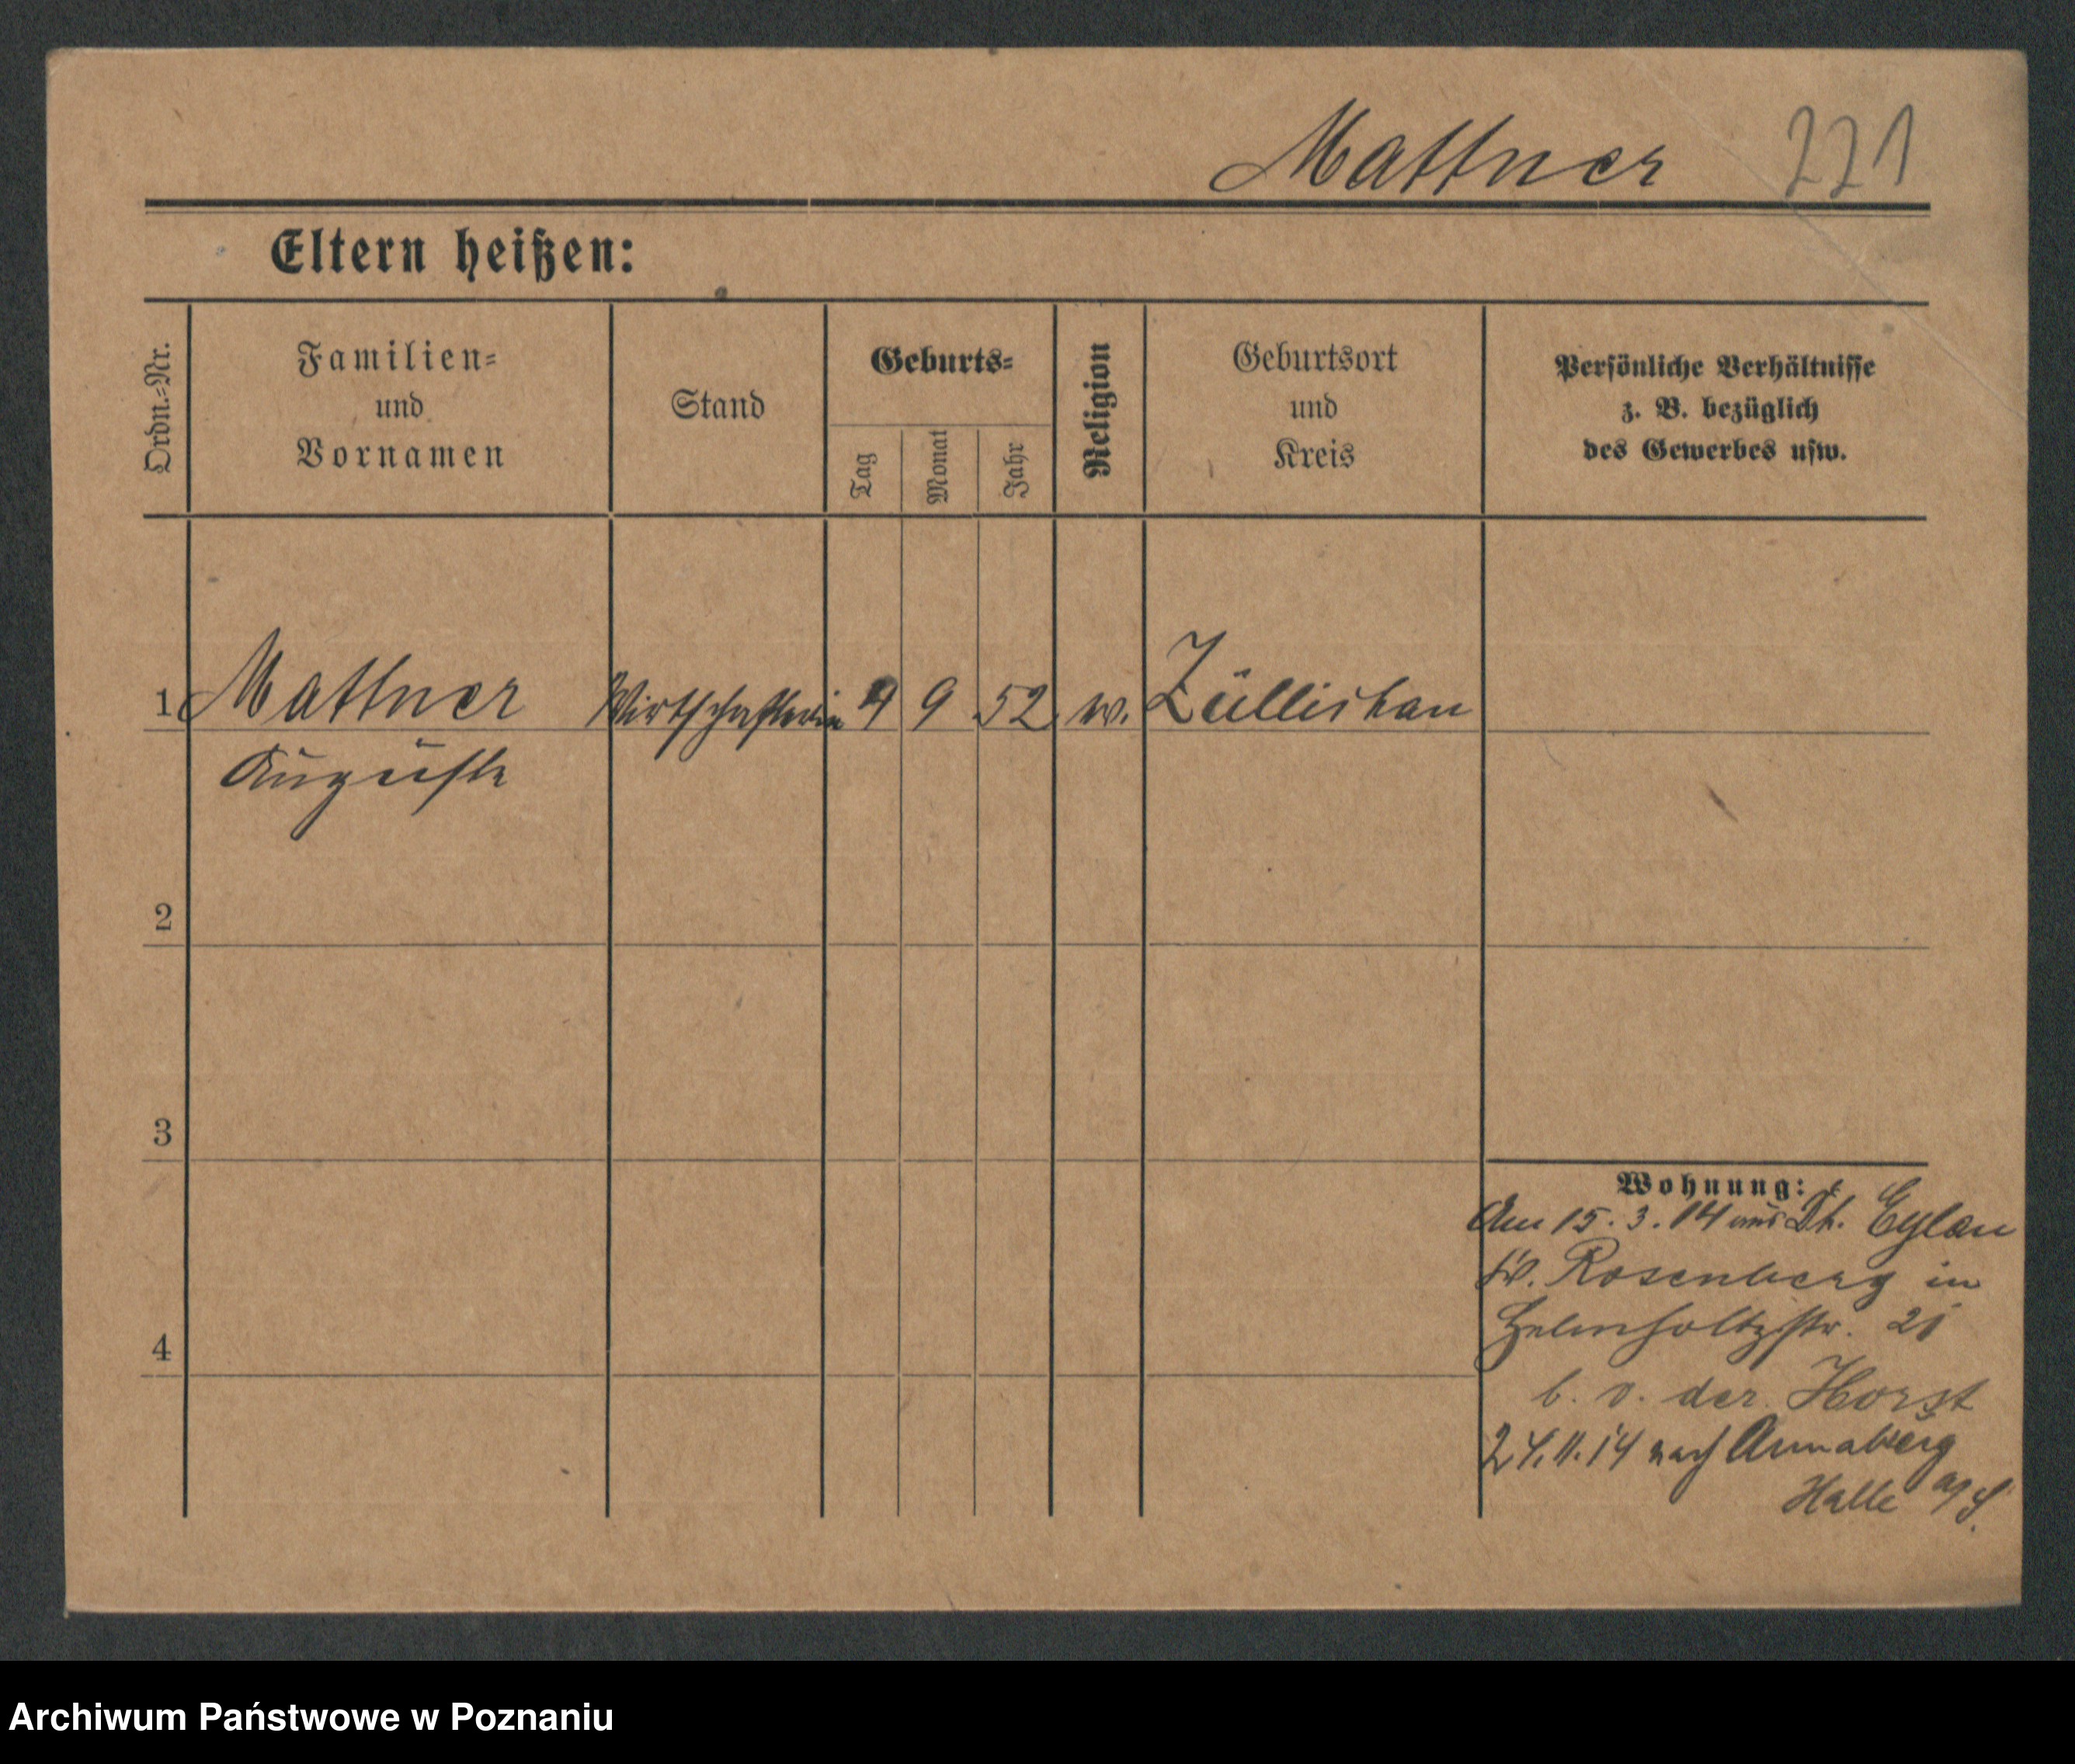 Mattner 221
Eltern heißen:
Ordn.-Nr.
Familien-
und
Vornamen
Stand
Geburts-
Tag
Monat
Jahr
Religion
Geburtsort
und
Kreis
Persönliche Verhältnisse
z. B. bezüglich
des Gewerbes usw.
1 Mattner Wirtschafterin 9 52 Züllichau
Auguste
2
3
4
Wohnung:
Am 15.3.14 aus Dt. Eylau
Kr. Rosenberg in
Helmholtzstr. 21
b. v. der Horst
24.11.14 nach Annaberg
Halle a/S.
Archiwum Państwowe w Poznaniu